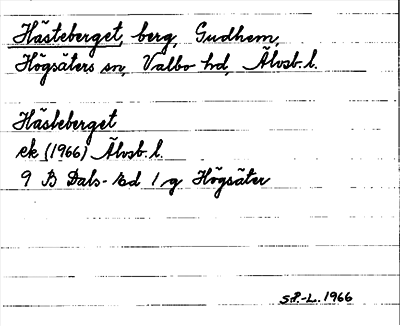 Hästeberget, berg, Gudhem,
Högsäters sn, Valbo hd, Älvsb. l.
Hästeberget
ek (1966) Älvsb. l.
9 B Dals-Ed 1 g Högsäter
S.P.-L. 1966